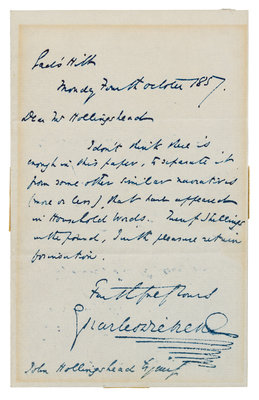 Gad's Hill
Monday Fourth October 1857.
Dear Mr Hollingshead
I don't think there is
enough in this paper, to separate it
from some other similar narratives
(more or less) that have appeared
in Household Words. Shillings
in the pound, I with pleasure retain
Faithfully Yours
Charles Dickens
John Hollingshead Esquire